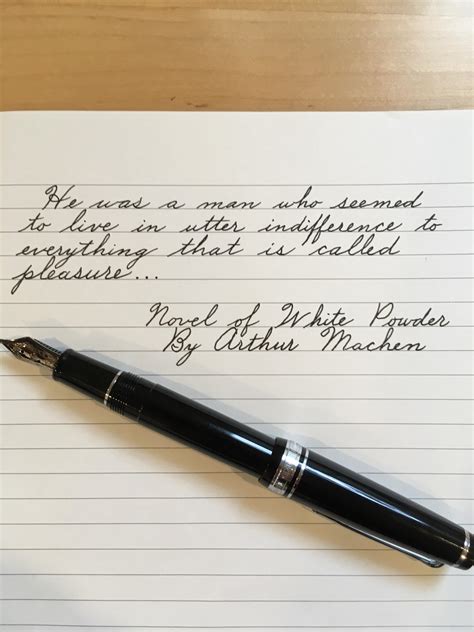 He was a man who seemed
to live in utter indifference to
everything that is called
pleasure...
Novel of White Powder
By Arthur Machen